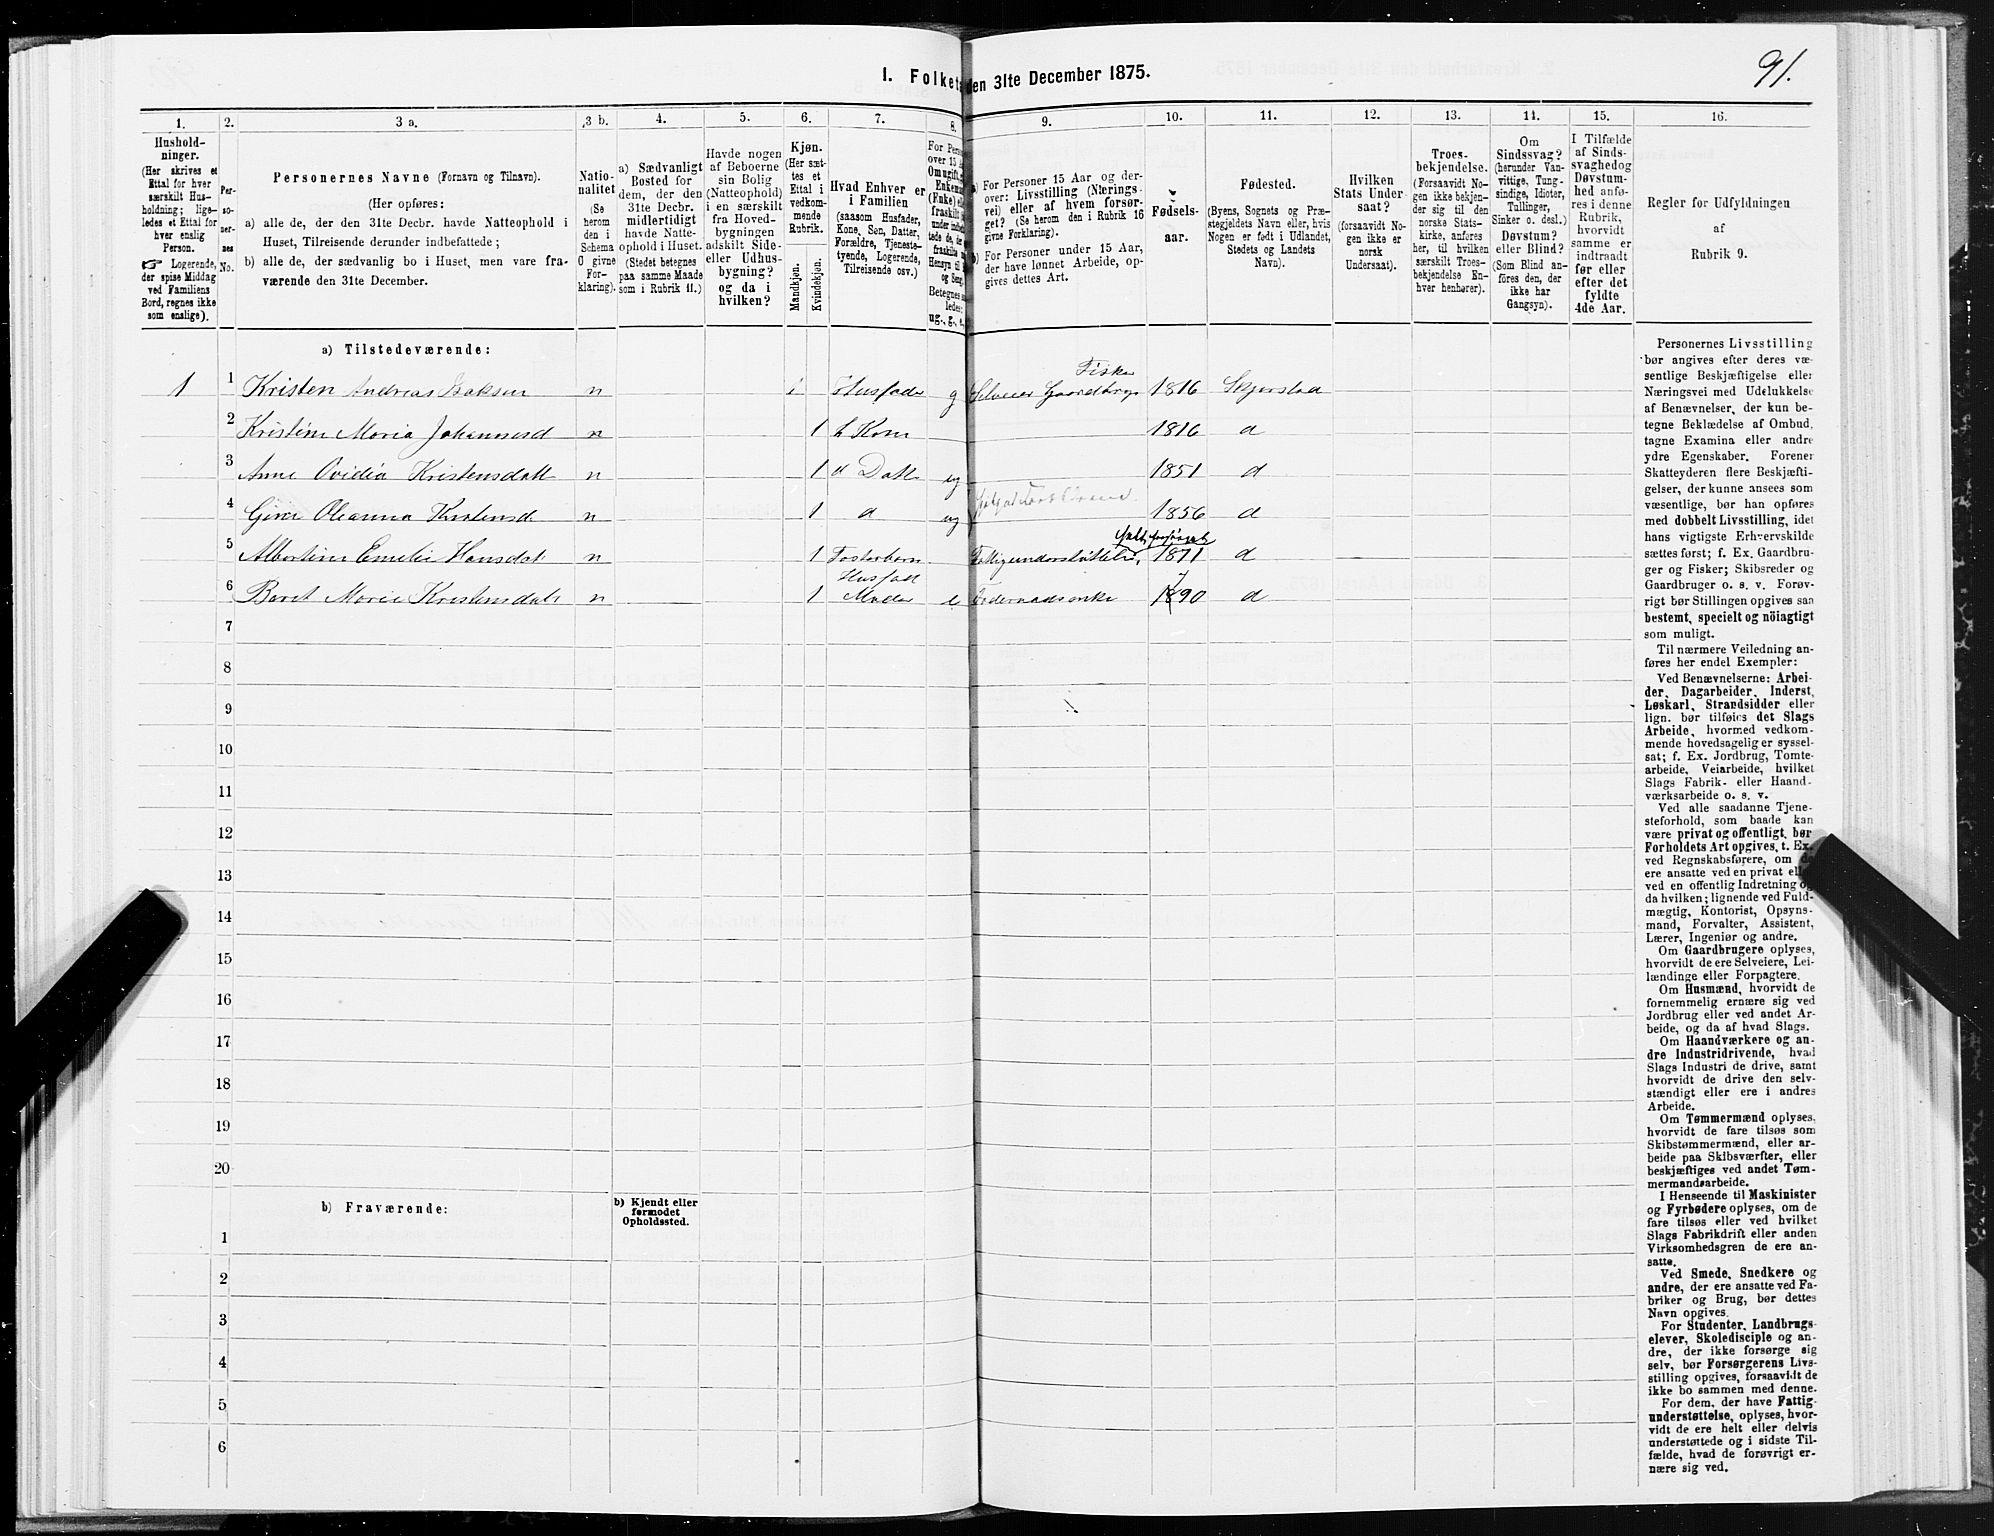 1. Folketæ den 31te December 1875.
91.
1.
Hushold-
ninger.
(Her skrives et
Ettal for hver
særskilt Hus-
holdning; lige-
ledes et Ettal for
hver enslig
Person.
☞ Logerende,
der spise Middag
ved Familiens
Bord, regnes ikke
som enslige).
2.
Per-
so-
ner-
nes
No.
3 a.
Personernes Navne (Fornavn og Tilnavn).
(Her opføres:
a) alle de, der den 31te Decbr. havde Natteophold i
Huset, Tilreisende derunder indbefattede;
b) alle de, der sædvanlig bo i Huset, men vare fra-
værende den 31te December.
3 b.
Natio-
nalitet
(Se
herom
den i
Schema
O givne
For-
klaring).
4.
a) Sædvanligt
Bosted for
dem, der den
31te Decbr.
midlertidigt
havde Natte-
ophold i Huset.
(Stedet betegnes
paa samme Maade
som i Rubrik 11.)
5.
Havde nogen
af Beboerne
sin Bolig
(Natteophold)
i en særskilt
fra Hoved-
bygningen
adskilt Side-
eller Udhus-
bygning?
og da i
hvilken?
6.
Kjøn.
(Her sæt-
tes et
Ettal i
vedkom-
mende
Rubrik.
Mandkjøn.
Kvindekjøn.
7.
Hvad Enhver er
i Familien
(saasom Husfader,
Kone, Søn, Datter,
Forældre, Tjeneste-
tyende, Logerende,
Tilreisende osv.)
8.
For Pers
over 15 A
Omugift,
Enkema
(Enke) ell
fraskilt
under indbe
tede de, de
fraskilte
Hensyn til
og Seng
Betegnes s
ledes:
ug., g., e.,
9.
a) For Personer 15 Aar og der-
over: Livsstilling (Nærings-
vei) eller af hvem forsør-
get? (Se herom den i Rubrik 16
givne Forklaring).
b) For Personer under 15 Aar,
der have lønnet Arbeide, op-
gives dettes Art.
10.
Fødsels-
aar.
11.
Fødested.
(Byens, Sognets og Præ-
stegjeldets Navn eller, hvis
Nogen er født i Udlandet,
Stedets og Landets
Navn).
12.
Hvilken
Stats Under-
saat?
(forsaavidt No-
gen ikke er
norsk
Undersaat).
13.
Troes-
bekjendelse.
(Forsaavidt No-
gen ikke bekjen-
der sig til den
norske Stats-
kirke, anføres
her, til hvilken
særskilt Troes-
bekjendelse En-
hver henhører).
14.
Om
Sindssvag?
(herunder Van-
vittige, Tung-
sindige, Idioter,
Tullinger,
Sinker o. desl.)
Døvstum?
eller Blind?
(Som Blind an-
føres den, der
ikke har
Gangsyn).
15.
I Tilfælde
af Sinds-
svaghedog
Døvstum-
hed anfø-
res i denne
Rubrik,
hvorvidt
samme er
indtraadt
før eller
efter det
fyldte
4de Aar.
16.
Regler for Udfyldningen
af
Rubrik 9.
a) Tilstedeværende:
Fisker
1 1 Kristen Andreas Isaksen n 1 Husfader g Selveier Gaardbrug 1816 Skjerstad
2 Kristine Maria Johannesd n 1 h Kone 1816 d
3 Anne Ovidia Kristensdatt n 1 d Datt ug 1851 d
4 Oleanna Kristensd. n 1 d ug 1856 d
5 Albertine Emelie Hansdat n 1 Fosterbarn Fattigunderstøttelse 1871 d
Husfad
6 Beret Marie Kristensdat n 1 Moder e Føderaadsenke 1790 d
7
8
9
10
11
12
13
14
15
16
17
18
19
20
b) Fraværende:
b) Kjendt eller
formodet
Opholdssted.
1
2
3
4
5
6
Personernes Livsstilling
bør angives efter deres væ-
sentlige Beskjæftigelse eller
Næringsvei med Udelukkelse
af Benævnelser, der kun be-
tegne Beklædelse af Ombud,
tagne Examina eller andre
ydre Egenskaber. Forener
Skatteyderen flere Beskjæfti-
gelser, der kunne ansees som
væsentlige, bør han opføres
med dobbelt Livsstilling, idet
hans vigtigste Erhvervskilde
sættes først; f. Ex. Gaardbru-
ger og Fisker; Skibsreder og
Gaardbruger o. s. v. Forøv-
rigt bør Stillingen opgives saa
bestemt, specielt og nöiagtigt
som muligt.
Til nærmere Veiledning an-
føres her endel Exempler:
Ved Benævnelserne: Arbei-
der, Dagarbeider, Inderst,
Løskarl, Strandsidder eller
lign. bør tilføies det Slags
Arbeide, hvormed vedkom-
mende hovedsagelig er syssel-
sat; f. Ex. Jordbrug, Tomte-
arbeide, Veiarbeide, hvilket
Slags Fabrik- eller Haand-
værksarbeide o. s. v.
Ved alle saadanne Tjene-
steforhold, som baade kan
være privat og offentligt, bør
Forholdets Art opgives, t. Ex.
ved Regnskabsførere, om de
ere ansatte ved en privat eller
ved en offentlig Indretning og
da hvilken; lignende ved Fuld-
mægtig, Kontorist, Opsyns-
mand, Forvalter, Assistent,
Lærer, Ingeniør og andre.
Om Gaardbrugere oplyses,
hvorvidt de ere Selveiere, Lei-
lændinge eller Forpagtere.
Om Husmænd, hvorvidt de
fornemmelig ernære sig ved
Jordbrug eller ved andet Ar-
beide, og da af hvad Slags.
Om Haandværkere og an-
dre Industridrivende, hvad
Slags Industri de drive, samt
hvorvidt de drive den selv-
stændigt eller ere i andres
Arbeide.
Om Tømmermænd oplyses,
hvorvidt de fare tilsøs som
Skibstømmermænd, eller ar-
beide paa Skibsværfter, eller
beskjæftiges ved andet Tøm-
mermandsarbeide.
I Henseende til Maskinister
og Fyrbødere oplyses, om de
fare tilsøs eller ved hvilket
Slags Fabrikdrift eller anden
Virksomhedsgren de ere an-
satte.
Ved Smede, Snedkere og
andre, der ere ansatte ved Fa-
briker og Brug, bør dettes
Navn opgives.
For Studenter, Landbrugs-
elever, Skoledisciple og an-
dre, der ikke forsørge sig
selv, bør Forsørgerens Livs-
stilling opgives, forsaavidt de
ikke bo sammen med denne.
For dem, der have Fattig-
understøttelse, oplyses, hvor-
vidt de ere helt eller delvis
understøttede og i sidste Til-
fælde, hvad de forøvrigt er-
nære sig ved.